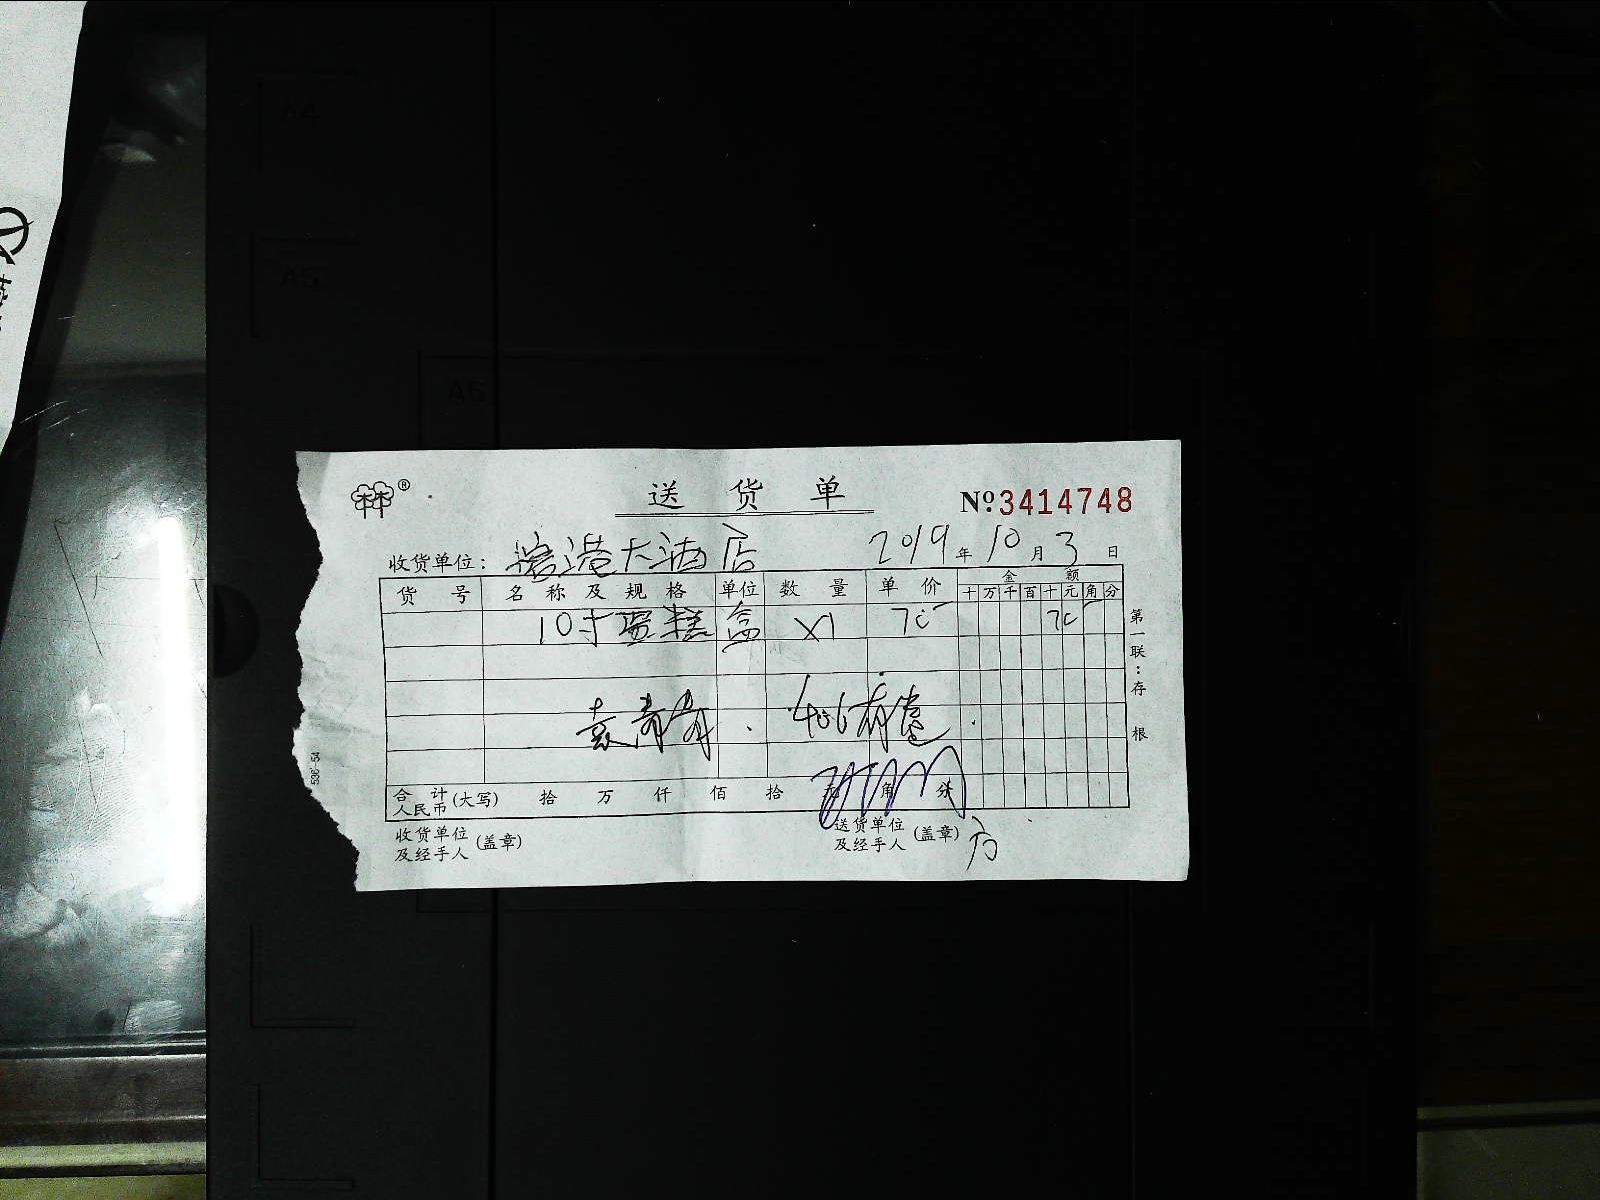 A4
A5
A6
林® 送货单 №3414748
收货单位: 港大酒店 2019年10月3日
货号 名称及规格 单位 数量 单价 金额
十万千百十元角分
10寸蛋糕 盒 X1 70 70
第一联:存根
袁青青 406
合计人民币(大写) 拾 万 仟 佰 拾 元 角 分
收货单位及经手人(盖章) 送货单位及经手人(盖章)
536-54